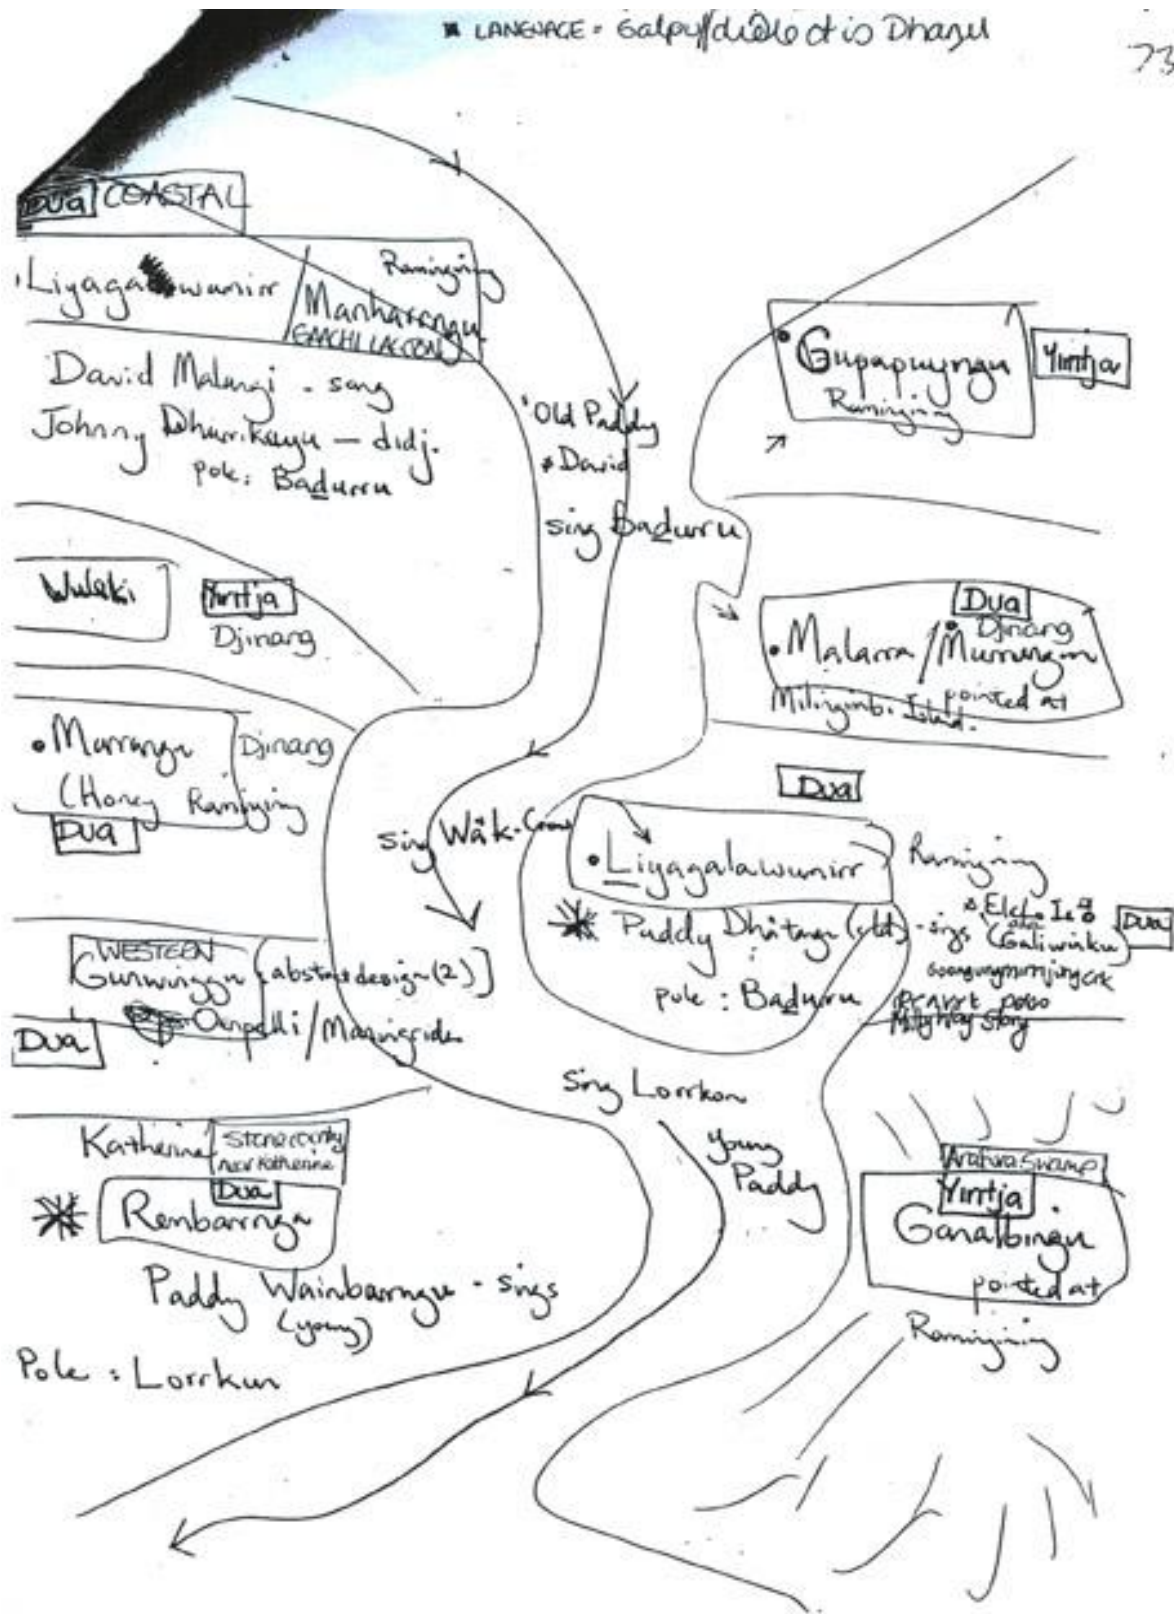 LANGUAGE = Galpu/dialect is Dhangu
73
Dua COASTAL
Liyagalawumirr / Manharrngu
Ramingining
David Malangi - song
Johnny Dhurrikayu - didj.
pole: Badurru
Old Paddy
& David
sing Badurru
Gupapuyngu
Ramingining
Yirritja
Wulaki
Yirritja
Djinang
Dua
Djinang
Malarra / Murrungun
Milingimbi Island.
pointed at
Marrangu
Djinang
(Honey Ramingining
Dua
sing Wäk-Crow
Dua
Liyagalawumirr
Ramingining
Paddy Dhätangu (old) - sings
Elcho Is
(Galiwinku
Dua
pole: Baduru
Milky Way Story
WESTERN
Gunwinggu (abstract design (2)]
Oenpelli / Maningrida
Dua
sing Lorrkon
young
Paddy
Katherine
Stone country
near Katherine
Dua
Rembarrnga
Paddy Wainbarrngu - sings
(young)
Pole: Lorrkun
Arafura Swamp
Yirritja
Ganalbingu
pointed at
Ramingining